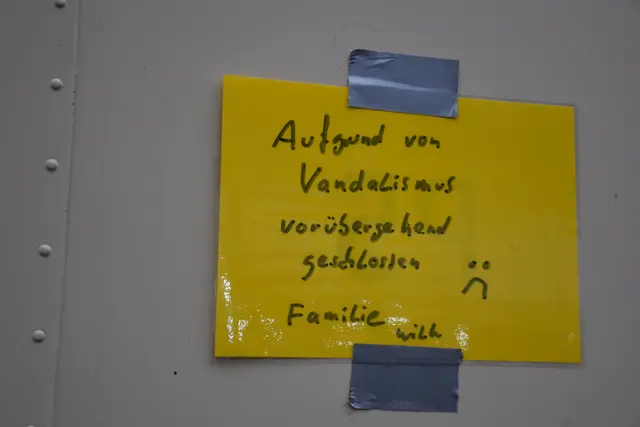 Aufgrund von
Vandalismus
vorübergehend
geschlossen
Familie